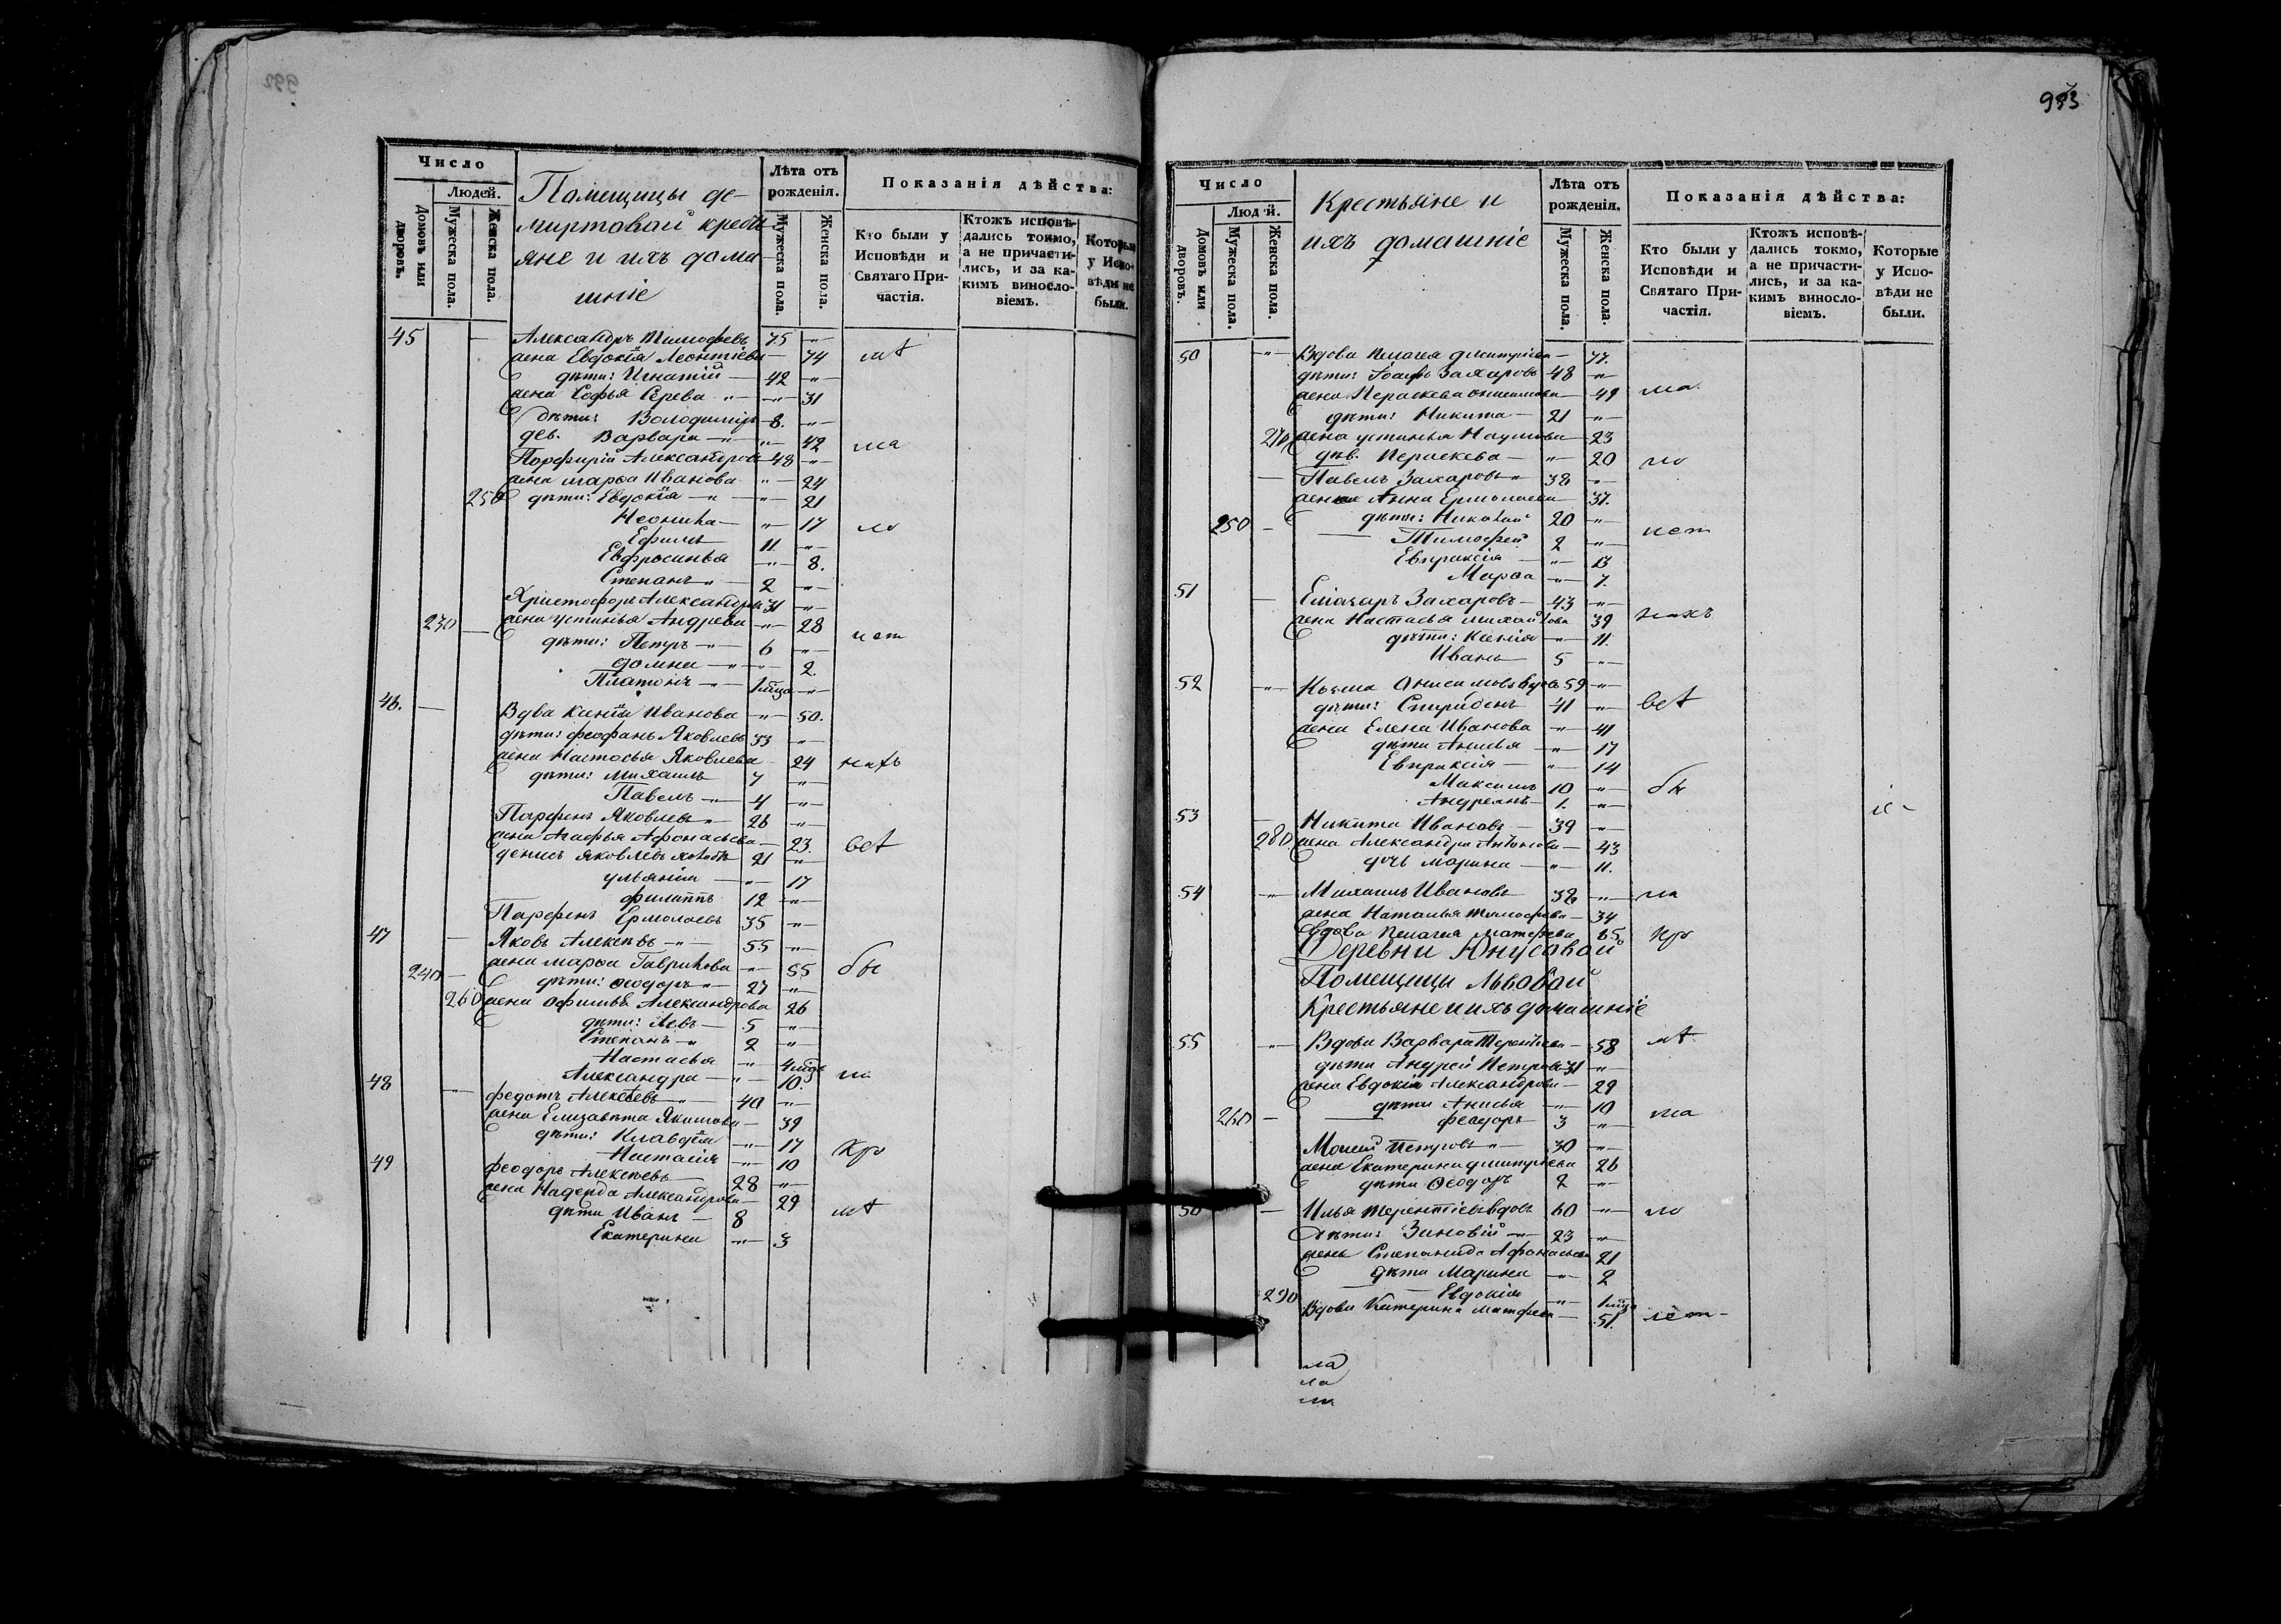 993
Число
Людей.
Домовъ или дворовъ.
Мужеска пола.
Женска пола.
Помещицы де-
миртовой кресть
яне и ихъ дома
шніе
Лѣта отъ рожденія.
Мужеска пола.
Женска пола.
Показанія дѣйства:
Кто были у Исповѣди и Святаго При-частія.
Ктожъ исповѣ-дались токмо, а не причасти-лись, и за ка-кимъ винословіемъ.
Которые у Испо-вѣди не были.
45 — Александръ Тимофѣевъ 75 —
жена Евдокія Леонтіева — 74
дѣти: Игнатій — 42 —
жена Софья — 31
дѣти: Володимиръ 8. —
дев. Варвара — 42 на
Порфирій Александровъ 48 —
жена Марѳа Иванова — 24
250 дѣти: Евдокія — 21
Неонила — 17 ло
Ефимъ 11 —
Евфросинья — 8.
Степанъ 2 —
Христофоръ Александровъ 31 —
230 — жена Устинья Андреева — 28
дѣти: Петръ — 6 — нет
Домна — 2
Платонъ — 1 мѣца —
46. — Вдва Ксенія Иванова — 50.
дѣти: Феофанъ Яковлевъ 33 —
жена Настасья Яковлева — 24
дѣти: Михаилъ 7 —
Павелъ — 4 —
Парфенъ Яковлевъ 26 —
жена Агафья Афонасьева — 23.
Денисъ Яковлевъ 21 —
Ульянія — 17
Филиппъ 12 —
Парфенъ Ермолаевъ 35 —
47 — Яковъ Алексѣевъ — 55 —
240 — жена Марѳа Гаврилова — 55 бы
дѣти: Ѳеодоръ 27 —
260 жена Офимья Александрова 26
дѣти: Левъ — 5 —
Степанъ 2 —
Настасья — 4 мѣца
Александра — 10. ла
48 — Федотъ Алексѣевъ — 40 —
жена Елизавѣта Якимова — 39
дѣти: Клавдія — 17 Кро
Настасія — 10
49 Феодоръ Алексѣевъ 28 —
жена Надежда Александрова — 29
дѣти Иванъ — 8
Екатерина — 3
Число
Людей.
Домовъ или дворовъ.
Мужеска пола.
Женска пола.
Крестьяне и
ихъ домашніе
Лѣта отъ рожденія.
Мужеска пола.
Женска пола.
Показанія дѣйства:
Кто были у Исповѣди и Святаго При-частія.
Ктожъ исповѣ-дались токмо, а не причасти-лись, и за ка-кимъ винословіемъ.
Которые у Испо-вѣди не были.
50 — Вдова Пелагея Дмитріева — 77.
дѣти: Захаровъ 48 —
жена Пераскева Онисимова — 49 на
дѣти: Никита — 21 —
270 жена Устинья Наумова — 23
дѣв. Пераскева — 20 ло
— Павелъ Захаровъ 38 —
жена Анна Ермолаева — 37.
250 — дѣти: Николай 20 —
Тимофей 2 — нет
Евпраксія — 13
Марѳа — 7.
51 — Еліазаръ Захаровъ — 43 —
жена Настасья Михайлова 39
дѣти: Ксенія — 11.
Иванъ 5 —
52 — Козма Онисимовъ вдовъ 59 —
дѣти: Спиридонъ 41 —
жена Елена Иванова — 41
дѣти Анисья — 17
Евпраксія — 14
Максимъ 10 — бы
Андреянъ 1. —
53 — Никита Ивановъ — 39 —
280. жена Александра Антонова — 43
дочь Марина — 11.
54 — Михаилъ Ивановъ 32 — ла
жена Наталья Тимофеева — 34
Вдова Пелагея Матфеева 65. Кро
Деревни Юнусовой
Помещицы Львовой
Крестьяне и ихъ домашніе
55 — Вдова Варвара Терентіева — 58
дѣти Андрей Петровъ 31 —
жена Евдокія Александрова — 29
дѣти Анисья — 10
260 — Феодоръ 3 —
Моисей Петровъ 30 —
жена Екатерина Дмитріева 26
дѣти Ѳеодоръ 2 —
56 — Илья Терентіевъ вдовъ 60 — ло
дѣти: Зиновій — 23 —
жена Степанида Афонасьева 21
дѣти Марина — 2
290 Евдокія — 1 мѣца
Вдова Катерина Матфеева — 51.